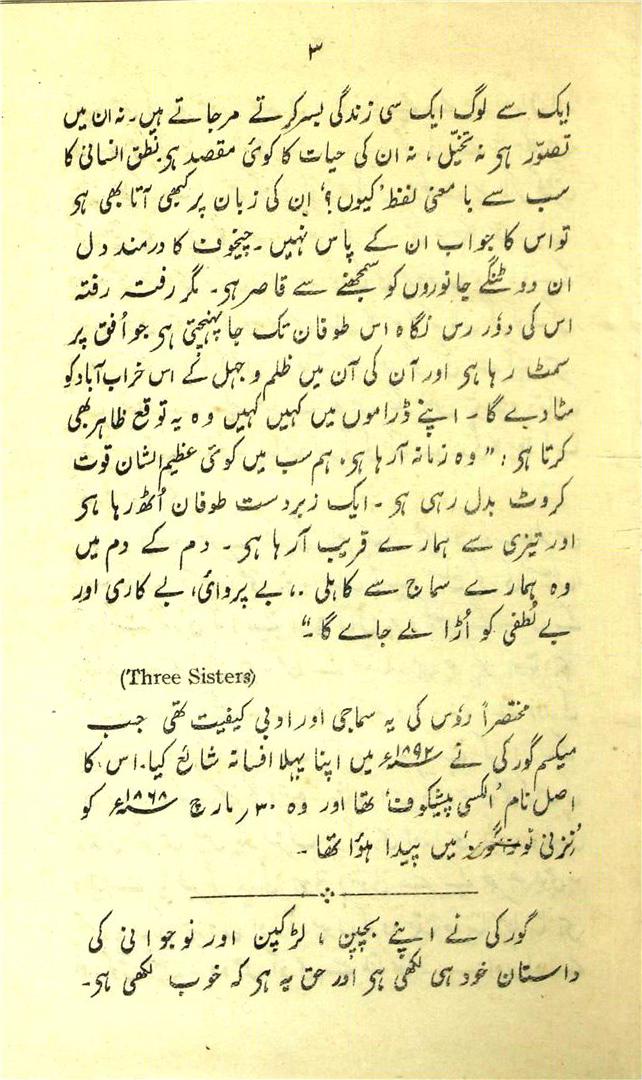 ۳
ایک سے لوگ ایک سی زندگی بسر کرتے مر جاتے ہیں۔ نہ ان میں
تصوّر ہو نہ تخیّل، نہ ان کی حیات کا کوئی مقصد ہو۔ نطق انسانی کا
سب سے با معنی لفظ ’کیوں؟‘ اِن کی زبان پر کبھی آتا بھی ہو
تو اس کا جواب ان کے پاس نہیں۔ چیخوف کا درمند دل
ان دو ٹنگے جانوروں کو سمجھنے سے قاصر ہو۔ مگر رفتہ رفتہ
اس کی دوٗر رس نگاہ اس طوفان تک جا پہنچتی ہو جو اُفق پر
سمٹ رہا ہو اور آن کی آن میں ظلم و جہل کے اس خراب آباد کو
مٹا دے گا۔ اپنے ڈراموں میں کہیں کہیں وہ یہ توقع ظاہر بھی
کرتا ہو: ”وہ زمانہ آ رہا ہو، ہم سب میں کوئی عظیم الشان قوت
کروٹ بدل رہی ہو۔ ایک زبردست طوفان اُٹھ رہا ہو
اور تیزی سے ہمارے قریب آ رہا ہو۔ دم کے دم میں
وہ ہمارے سماج سے کاہلی، بے پروائی، بے کاری اور
بے لُطفی کو اُڑا لے جائے گا۔“
(Three Sisters)
مختصراً روٗس کی یہ سماجی اور ادبی کیفیت تھی جب
میکسم گورکی نے ۱۸۹۲ء میں اپنا پہلا افسانہ شائع کیا۔ اس کا
اصل نام ’الکسی پیشکوف‘ تھا اور وہ ۳۰ مارچ ۱۸۶۸ء کو
میں پیدا ہؤا تھا۔
گورکی نے اپنے بچپن، لڑکپن اور نوجوانی کی
داستان خود ہی لکھی ہو اور حق یہ ہو کہ خوب لکھی ہو۔